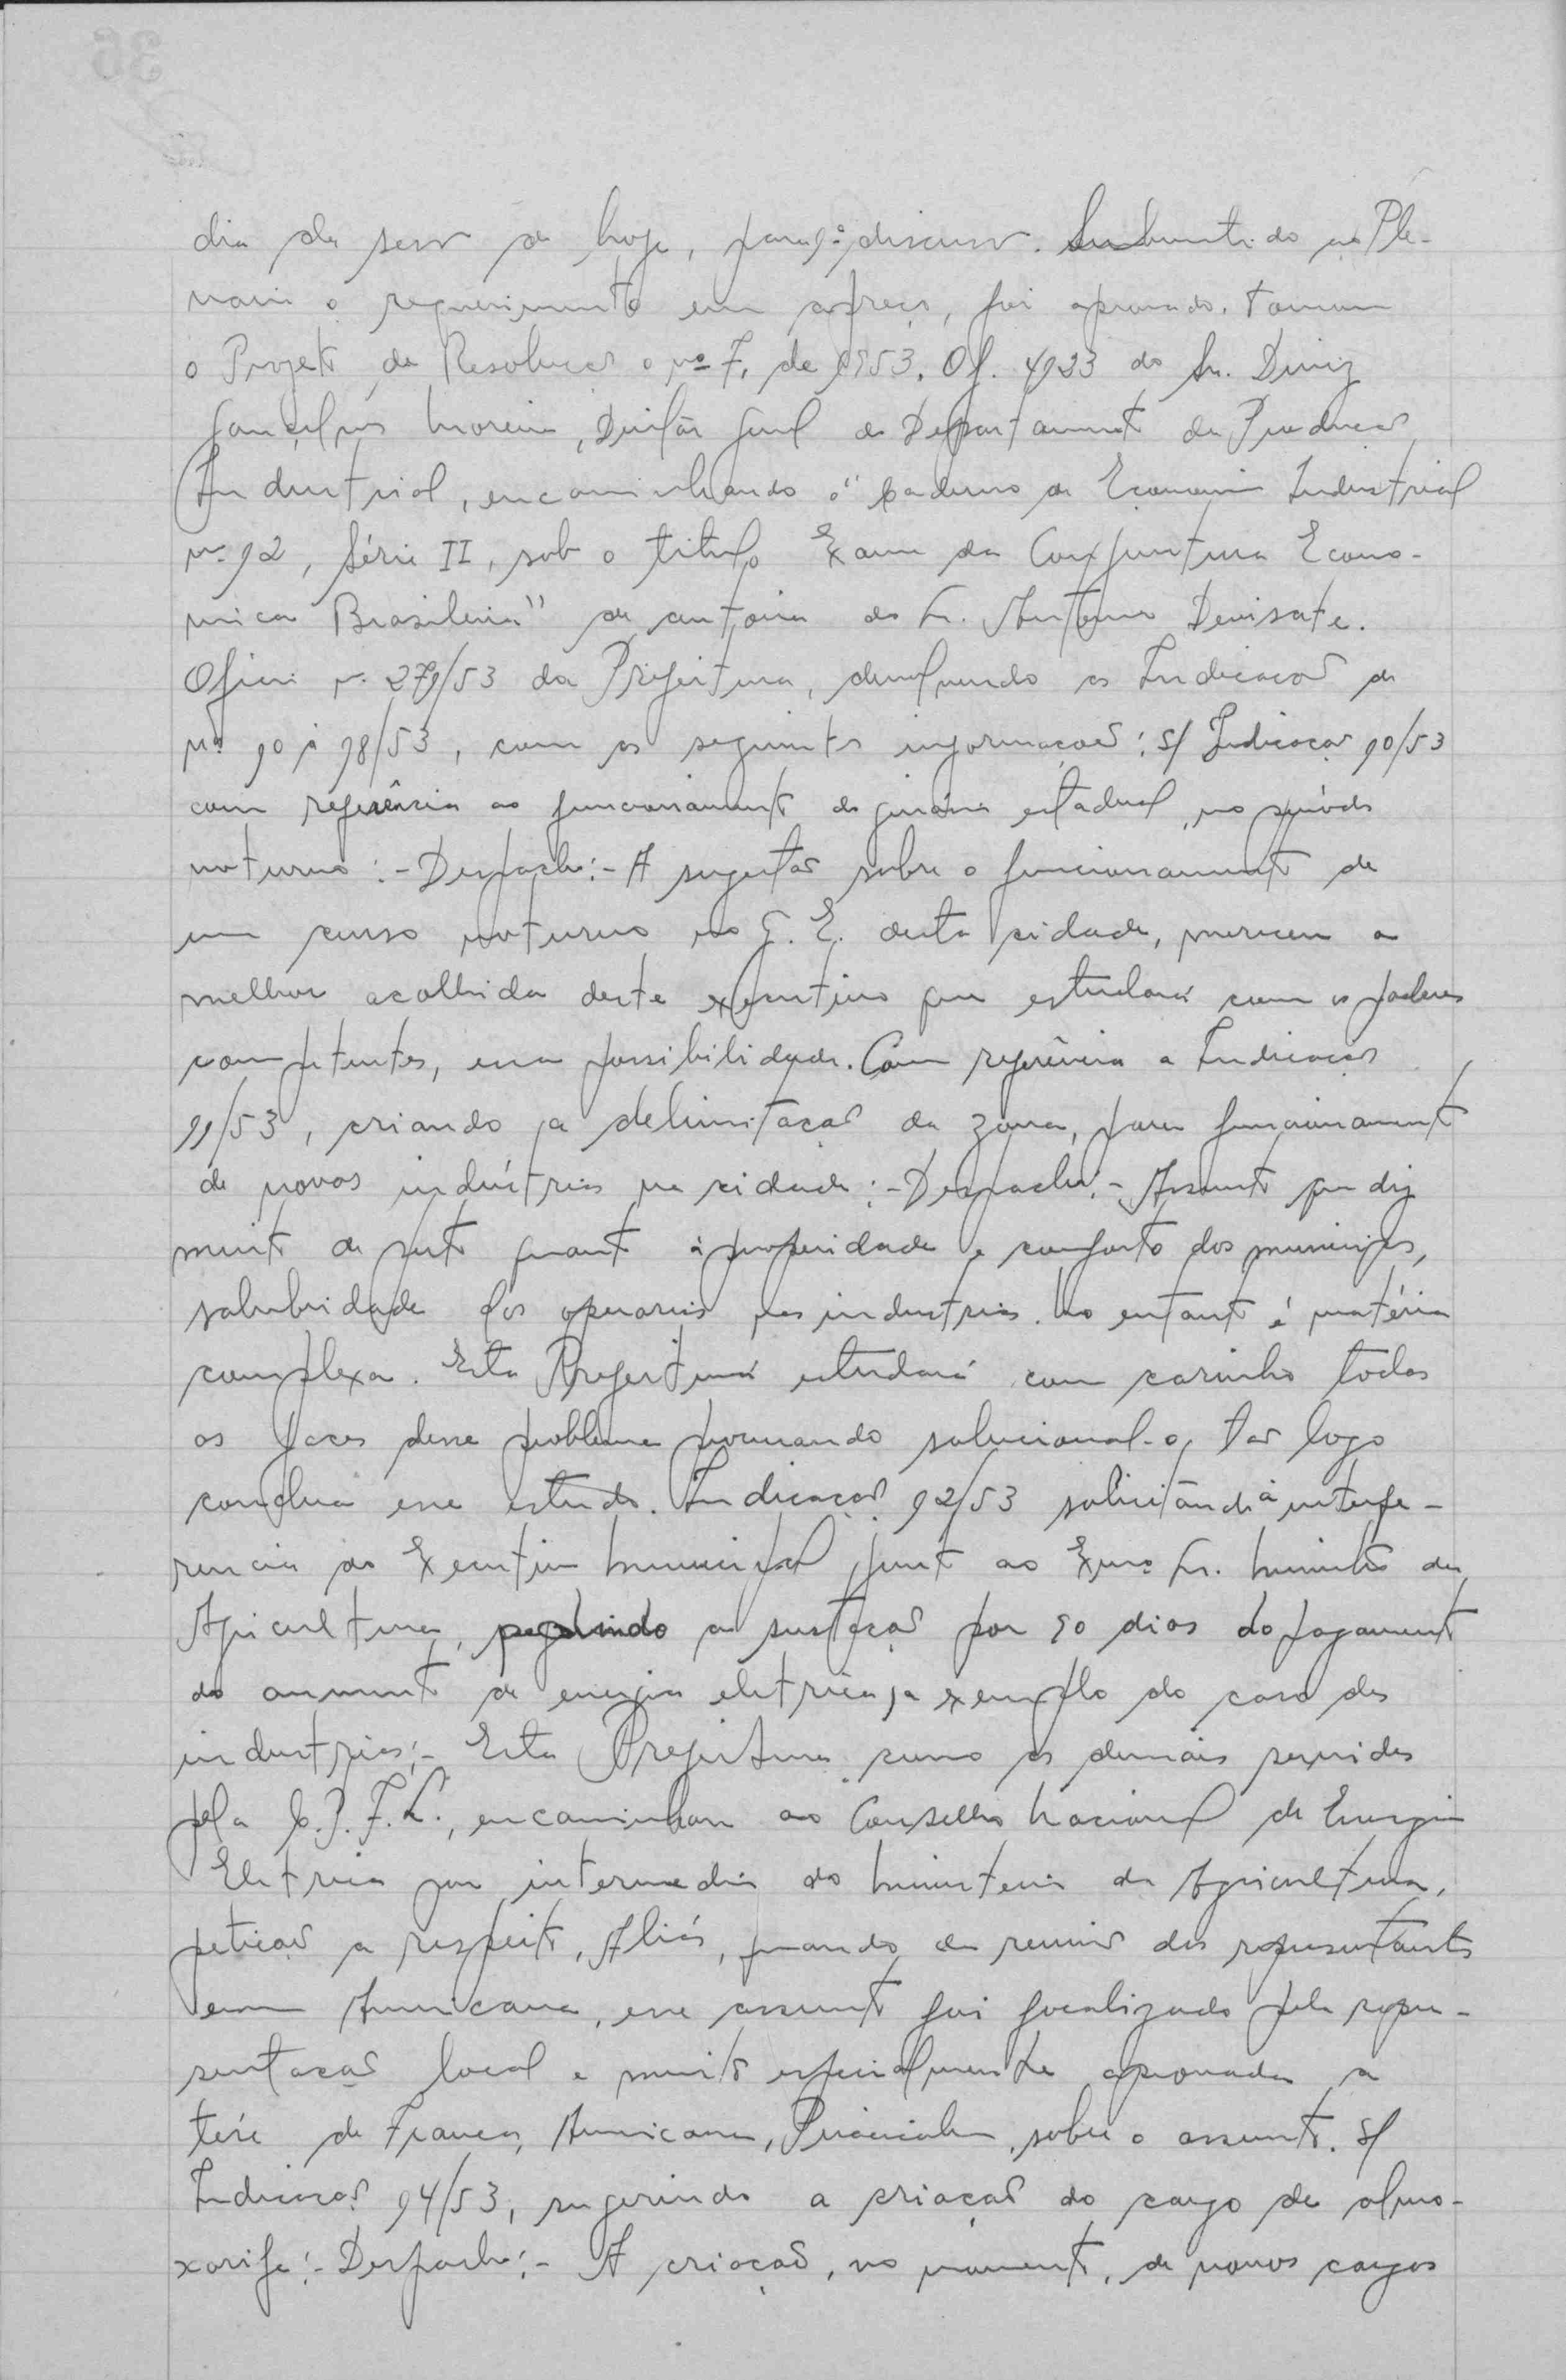 dia da sessão de hoje, para 1ª discussão. Submetido ao Ple-
nario o requerimento em apreço, foi aprovado. Tomou
o Projeto de Resolução o nº 7, de 1953. Of. 4923 do Sr. Diniz
Gonçalves Moreira, Diretor Geral do Departamento da Produção
Industrial, encaminhando o "Caderno de Economia Industrial
nº 92, Série II, sob o titulo Exame da Conjuntura Econo-
mica Brasileira" de autoria do Sr. Antonio Devisate.
Oficio nº 279/53 da Prefeitura, devolvendo as Indicações de
nºs 90 à 98/53, com as seguintes informações: S/ Indicação 90/53
com referência ao funcionamento do ginásio estadual, no período
noturno:- Despacho:- A sugestão sobre o funcionamento de
um curso noturno no G. E. desta cidade, mereceu a
melhor acolhida deste executivo que estudará com os poderes
competentes, essa possibilidade. Com referência a Indicação
91/53, criando a delimitação da zona, para funcionamento
de novas indústrias na cidade:- Despacho:- Assunto que diz
muito de perto quanto à prosperidade e conforto dos municipes,
salubridade dos operarios nas industrias. No entanto é matéria
complexa. Esta Prefeitura estudará com carinho todas
as faces desse problema procurando solucional-o, tão logo
conclua esse estudo. Indicação 92/53 solicitando a interfe-
rencia do Executivo Municipal, junto ao Exmo Sr. Ministro da
Agricultura, pedindo a sustação por 90 dias do pagamento
do aumento de energia eletrica, a exemplo do caso das
industrias:- Esta Prefeitura como as demais servidas
pela C.P.F.L., encaminhou ao Conselho Nacional de Energia
Eletrica por intermedio do Ministerio da Agricultura,
petição a respeito. Aliás, quando da reunião dos representantes
em Americana, esse assunto foi focalizado pela repre-
sentação local e muito especialmente aprovada a
tése de Franca, Americana, Piracicaba, sobre o assunto. S/
Indicação 94/53, sugerindo a criação do cargo de almo-
xarife:- Despacho:- A criação, no momento, de novos cargos